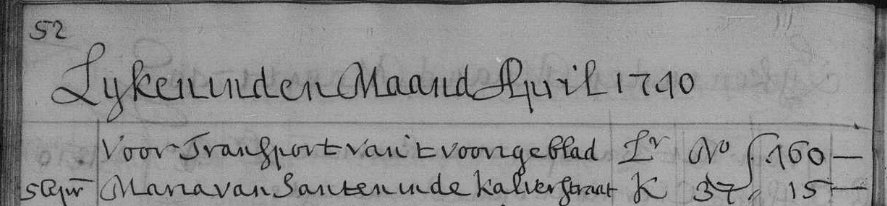 52
Lyken in den Maand April 1740
Voor Transport van 't voorige blad Lr No ƒ 160 —
5 Apr Maria van Santen in de Kalverstraat K 37 „ 15 —